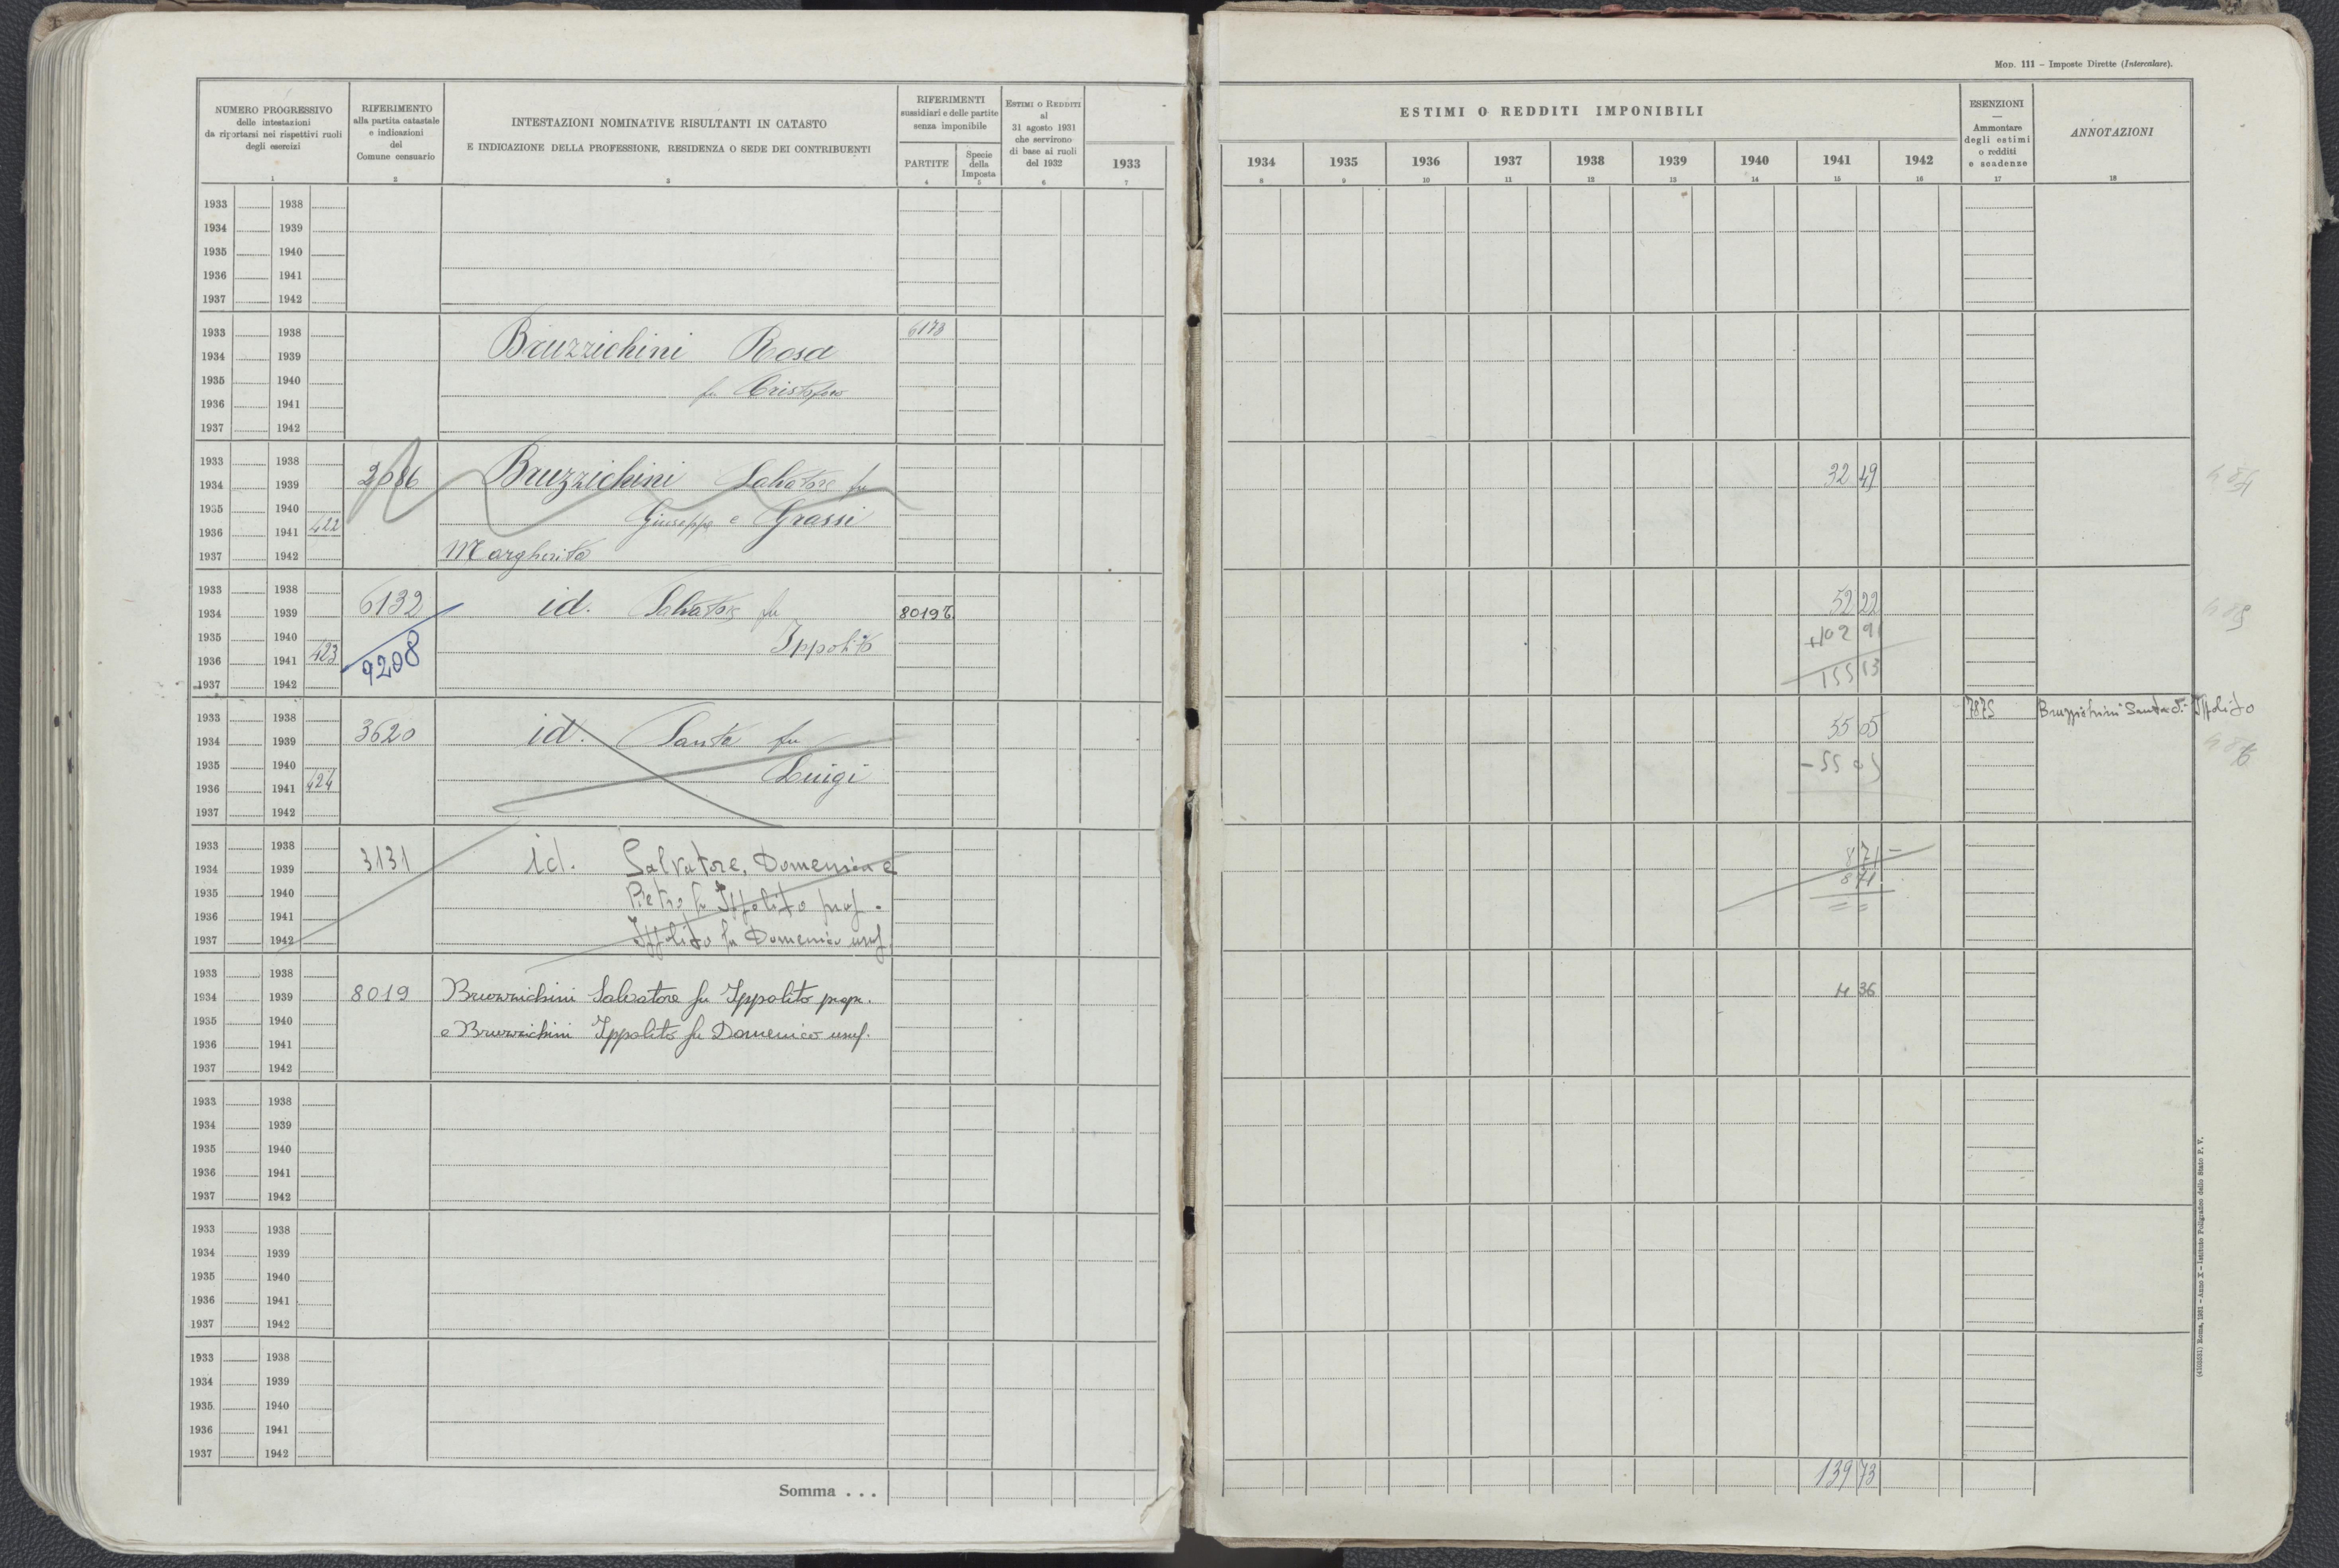 Mod. 111 – Imposte Dirette (Intercalare).
NUMERO PROGRESSIVO
delle intestazioni
da riportarsi nei rispettivi ruoli
degli esercizi
1
RIFERIMENTO
alla partita catastale
e indicazioni
del
Comune censuario
2
INTESTAZIONI NOMINATIVE RISULTANTI IN CATASTO
E INDICAZIONE DELLA PROFESSIONE, RESIDENZA O SEDE DEI CONTRIBUENTI
3
RIFERIMENTI
sussidiari e delle partite
senza imponibile
PARTITE
4
Specie
della
Imposta
5
Estimi o Redditi
al
31 agosto 1931
che servirono
di base ai ruoli
del 1932
6
1933
7
ESTIMI O REDDITI IMPONIBILI
1934 1935 1936 1937 1938 1939 1940 1941 1942
8 9 10 11 12 13 14 15 16
ESENZIONI
—
Ammontare
degli estimi
o redditi
e scadenze
17
ANNOTAZIONI
18
1933 1938
1934 1939
1935 1940
1936 1941
1937 1942
1933 1938 6173
1934 1939 Bruzzichini Rosa
1935 1940 fu Cristoforo
1936 1941
1937 1942
1933 1938
1934 1939 2686 Bruzzichini Salvatore fu 32 49
1935 1940 Giuseppe e Grassi
1936 1941 422
1937 1942 Margherita
1933 1938
1934 1939 6132 id. Salvatore fu 8019 52 22
1935 1940 Ippolito +102 91
1936 1941 423 9208 155 13
1937 1942
1933 1938 7875 Bruzzichini Santa di Ippolito
1934 1939 3620 id. Santa fu 55 05
1935 1940 Luigi – 55 05
1936 1941 424
1937 1942
1933 1938
1934 1939 3131 id. Salvatore, Domenica e 8 71
1935 1940 Pietro fu Ippolito prop. 8 71
1936 1941
1937 1942 Ippolito fu Domenico usuf.
1933 1938
1934 1939 8019 Bruzzichini Salvatore fu Ippolito propr. 4 36
1935 1940 e Bruzzichini Ippolito fu Domenico usuf.
1936 1941
1937 1942
1933 1938
1934 1939
1935 1940
1936 1941
1937 1942
1933 1938
1934 1939
1935 1940
1936 1941
1937 1942
1933 1938
1934 1939
1935 1940
1936 1941
1937 1942
Somma . . . 139 73
(4103551) Roma, 1931 – Anno X – Istituto Poligrafico dello Stato P. V.